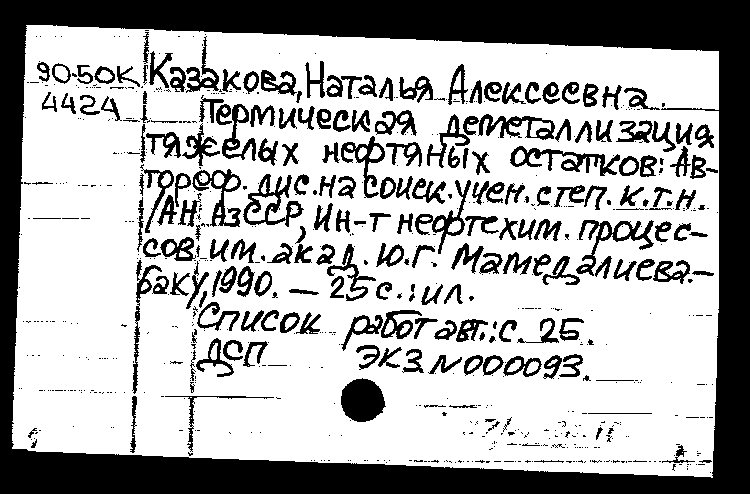 90-50К Казакова, Наталья Алексеевна.
4424 Термическая деметаллизация
тяжелых нефтяных остатков: Ав-
тореф. дис. на соиск. учен. степ. к.т.н.
/АН АзССР, Ин-т нефтехим. процес-
сов им. акад. Ю.Г. Мамедалиева.-
Баку, 1990. - 25 с.: ил.
Список работ авт.: с. 25.
ДСП ЭКЗ. N000093.